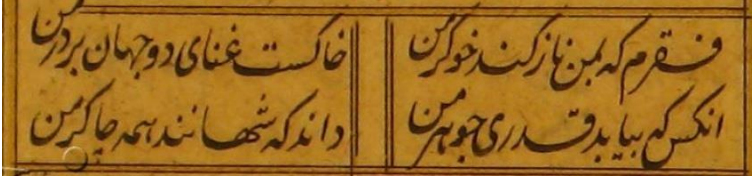 فقرم که بمن ناز کند خوگر من
خاکست غنای دو جهان بر در من
انکس که بیابد قدری جوهر من
داند که شهانند همه چاکر من